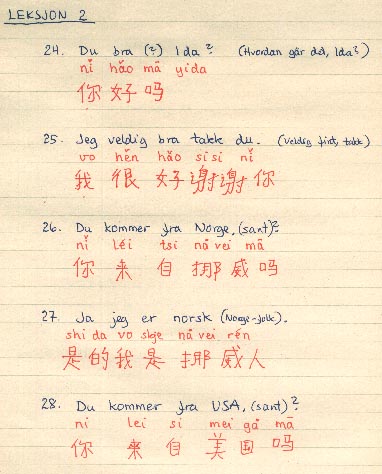 LEKSJON 2
24. Du bra (?) Ida? (Hvordan går det, Ida?)
ni hăo mā yida
你好吗
25. Jeg veldig bra takk du. (Veldig fint, takk)
vo hĕn hăo sisi ni
我很好谢谢你
26. Du kommer fra Norge, (sant)?
ni léi tsi nå vei mā
你来自挪威吗
27. Ja jeg er norsk (Norge-folk).
shi da vo skje nå vei rén
是的我是挪威人
28. Du kommer fra USA, (sant)?
ni lei si mei gå mā
你来自美国吗